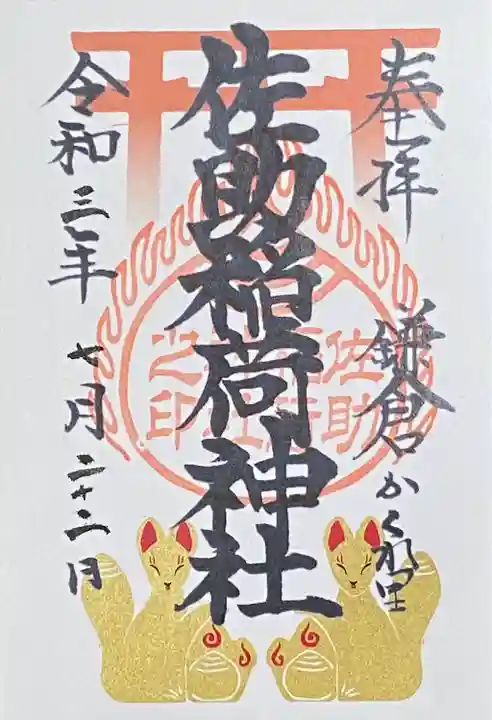 奉拝
鎌倉かくれ里
佐助稲荷神社
佐助
稲荷
神社
之印
令和三年
七月二十二日